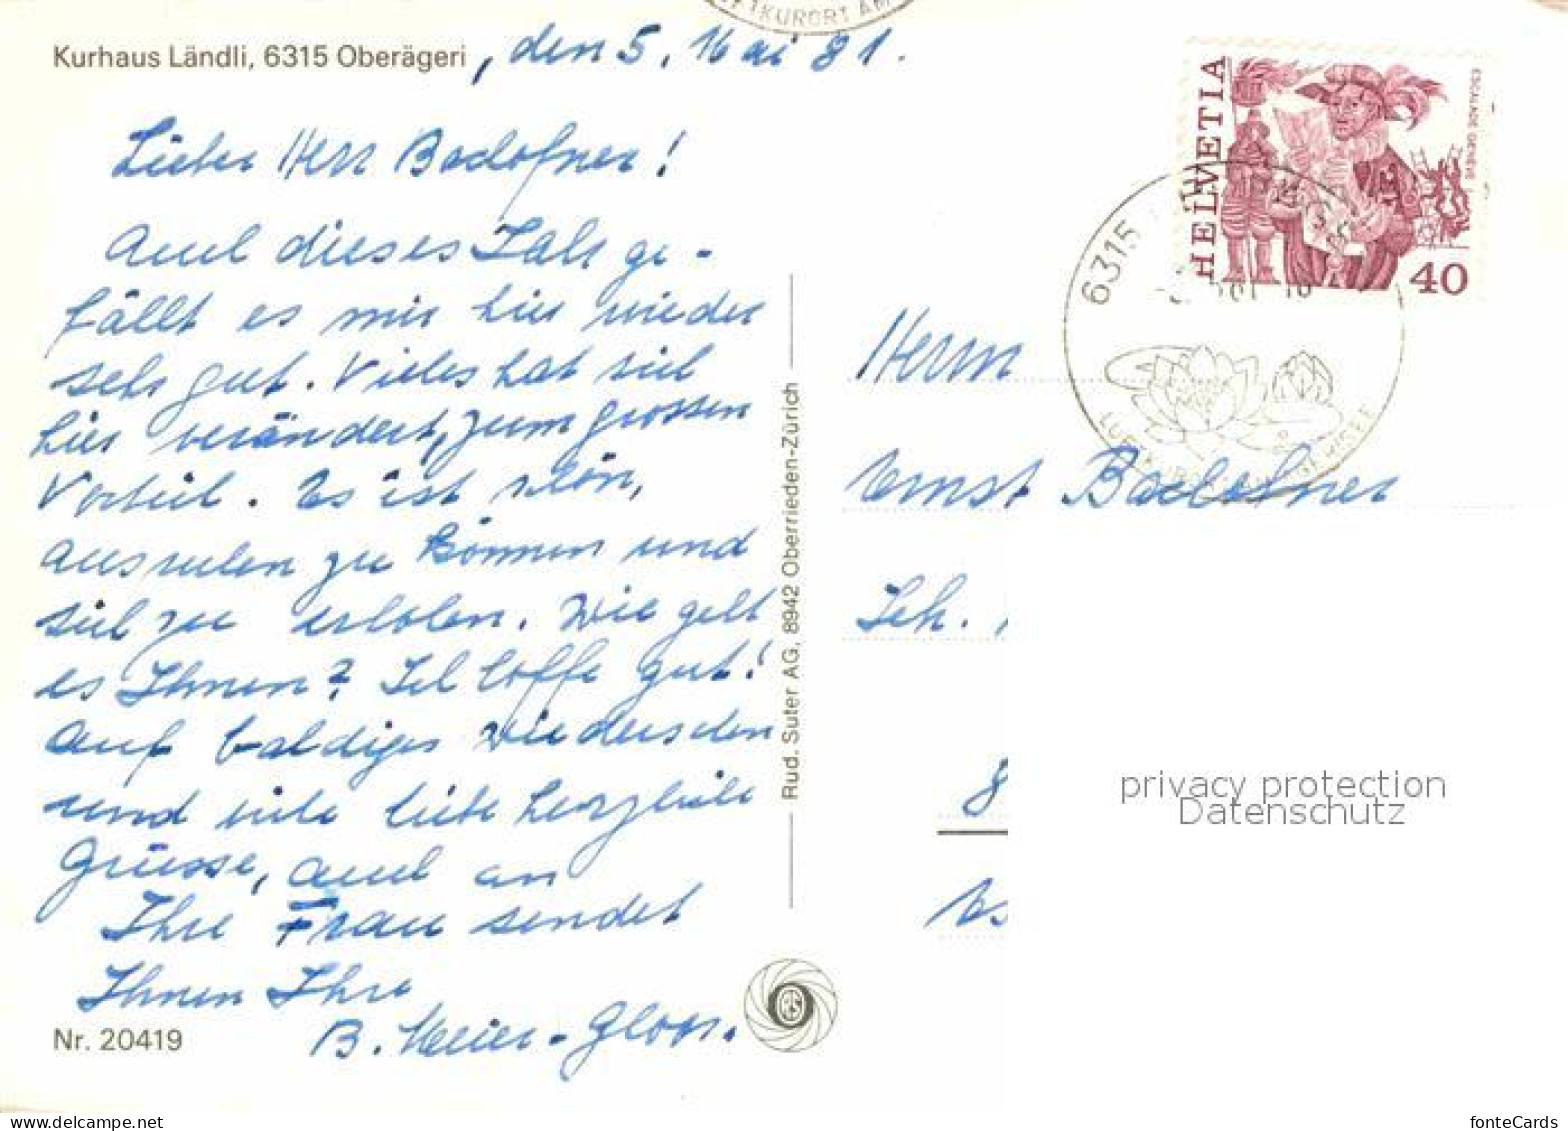 FTKURORT AM
Kurhaus Ländli, 6315 Oberägeri, den 5. Mai 81.
Lieber Herr Bachofner!
Auch dieses Jahr ge-
fällt es mir hier wieder
sehr gut. Vieles hat sich
hier verändert, zum grossen
Vorteil. Es ist schön,
ausruhen zu können und
sich zu erholen. Wie geht
es Ihnen? Ich hoffe gut!
Auf baldiges Wiedersehen
und viele liebe herzliche
Grüsse, auch an
Ihre Frau sendet
Ihnen Ihre
B. Meier-Gloor.
Nr. 20419
Rud. Suter AG, 8942 Oberrieden-Zürich
HELVETIA
ESCALADE GENÈVE
40
6315
Herrn
Ernst Bachofner
Sch.
8
Es
privacy protection
Datenschutz
fonteCards